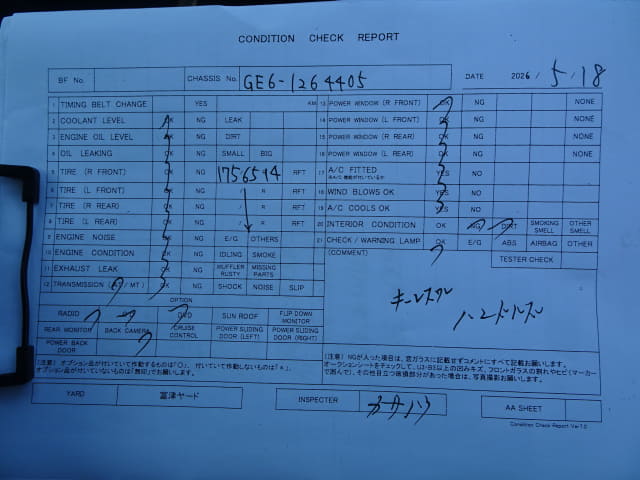 CONDITION CHECK REPORT
BF No. CHASSIS No. GE6-1264405 DATE 2026 / 5 / 18
1 TIMING BELT CHANGE YES KM
2 COOLANT LEVEL OK NG LEAK
3 ENGINE OIL LEVEL OK NG DIRT
4 OIL LEAKING OK NG SMALL BIG
5 TIRE (R FRONT) OK NG 1756514 RFT
6 TIRE (L FRONT) OK NG / R RFT
7 TIRE (R REAR) OK NG / R RFT
8 TIRE (L REAR) OK NG / R RFT
9 ENGINE NOISE OK NG E/G OTHERS
10 ENGINE CONDITION OK NG IDLING SMOKE
11 EXHAUST LEAK OK NG MUFFLER RUSTY MISSING PARTS
12 TRANSMISSION (AT / MT) OK NG SHOCK NOISE SLIP
13 POWER WINDOW (R FRONT) OK NG NONE
14 POWER WINDOW (L FRONT) OK NG NONE
15 POWER WINDOW (R REAR) OK NG NONE
16 POWER WINDOW (L REAR) OK NG NONE
17 A/C FITTED YES NO
※A/C 機能が付いているか
18 WIND BLOWS OK YES NO
19 A/C COOLS OK YES NO
20 INTERIOR CONDITION OK NG DIRT SMOKING SMELL OTHER SMELL
21 CHECK / WARNING LAMP OK E/G ABS AIRBAG OTHER
(COMMENT) TESTER CHECK
キーレスプル
ハンドルスレ
OPTION
RADIO DVD SUN ROOF FLIP DOWN MONITOR
REAR MONITOR BACK CAMERA CRUISE CONTROL POWER SLIDING DOOR (LEFT) POWER SLIDING DOOR (RIGHT)
POWER BACK DOOR
(注意) オプション品が付いていて作動するものは「○」、付いていて作動しないものは「×」、
オプション品が付いていないものは「無印」でお願いします。
(注意) NGが入った場合は、窓ガラスに記載せずコメントにすべて記載お願いします。
オークションシートをチェックして、U3・B3以上の凹みキズ、フロントガラスの割れやヒビ(マーカー
で囲んで)、その他目立つ破損部分があった場合は、写真撮影お願いします。
YARD 富津ヤード INSPECTER AA SHEET
Condition Check Report Ver7.0